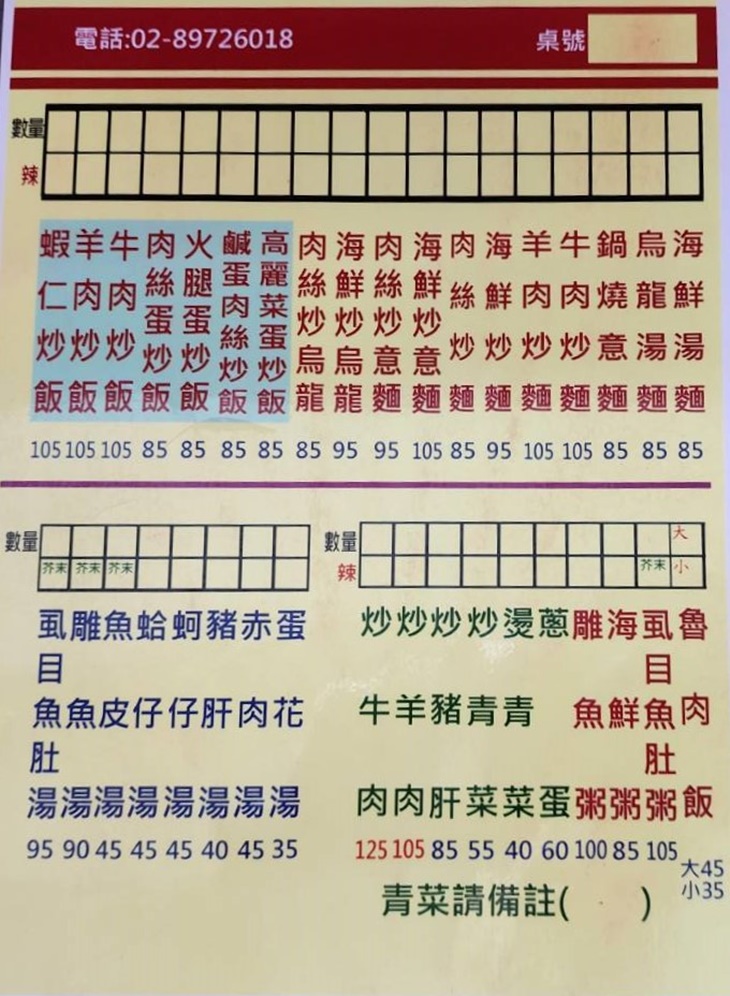 電話:02-89726018
桌號
數量
辣
蝦仁炒飯
羊肉炒飯
牛肉炒飯
肉絲蛋炒飯
火腿蛋炒飯
鹹蛋肉絲炒飯
高麗菜蛋炒飯
肉絲炒烏龍
海鮮炒烏龍
肉絲炒意麵
海鮮炒意麵
肉絲炒麵
海鮮炒麵
羊肉炒麵
牛肉炒麵
鍋燒意麵
烏龍湯麵
海鮮湯麵
105 105 105 85 85 85 85 85 95 95 105 85 95 105 105 85 85 85
數量
芥末 芥末 芥末
虱目魚肚湯
雕魚湯
魚皮湯
蛤仔湯
蚵仔湯
豬肝湯
赤肉湯
蛋花湯
95 90 45 45 45 40 45 35
數量
大
辣
芥末
小
炒牛肉
炒羊肉
炒豬肝
炒青菜
燙青菜
蔥蛋
雕魚粥
海鮮粥
虱目魚肚粥
魯肉飯
125 105 85 55 40 60 100 85 105
大45
小35
青菜請備註( )